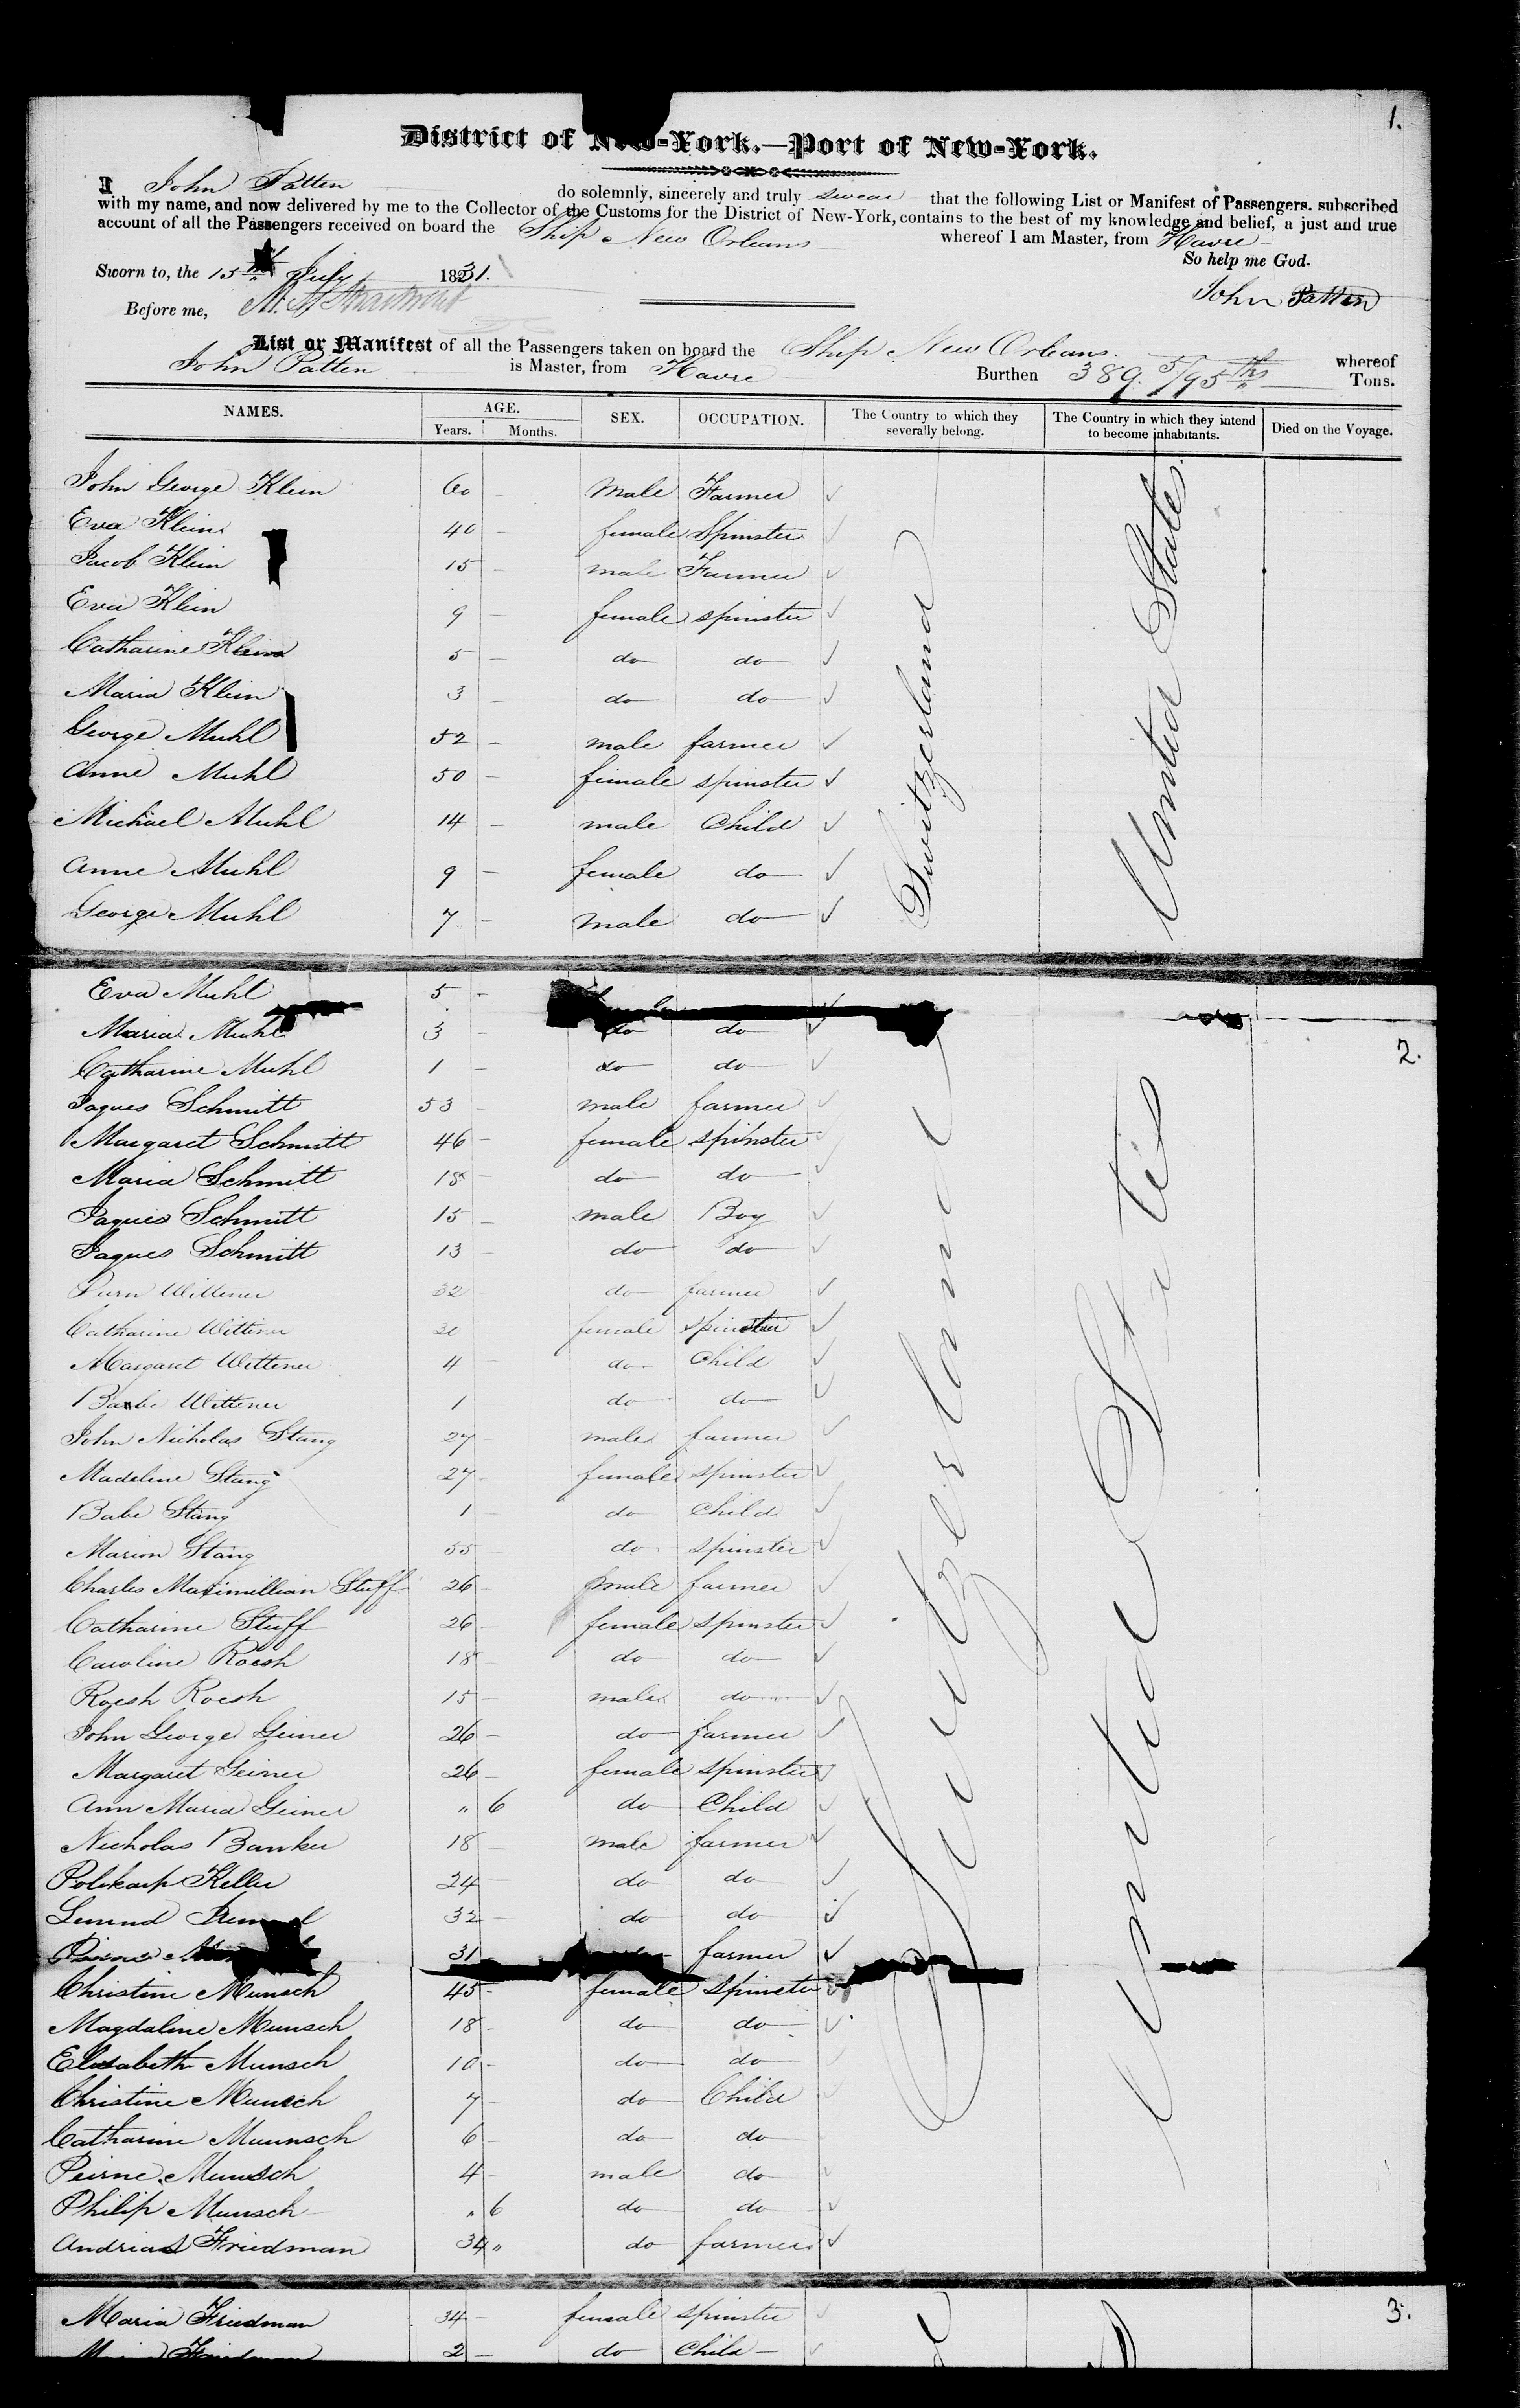 1.
District of New-York.—Port of New-York.
I John Patten do solemnly, sincerely and truly swear that the following List or Manifest of Passengers. subscribed
with my name, and now delivered by me to the Collector of the Customs for the District of New-York, contains to the best of my knowledge and belief, a just and true
account of all the Passengers received on board the Ship New Orleans whereof I am Master, from Havre
So help me God.
Sworn to, the 15th July 1831.
John Patten
Before me,
List or Manifest of all the Passengers taken on board the Ship New Orleans whereof
John Patten is Master, from Havre Burthen 389. 5/95ths Tons.
NAMES. AGE. SEX. OCCUPATION. The Country to which they severally belong. The Country in which they intend to become inhabitants. Died on the Voyage.
Years. Months.
John George Klein 60 - Male Farmer
Eva Klein 40 - female Spinster
Jacob Klein 15 - male Farmer
Eva Klein 9 - female spinster
Catharine Klein 5 - do do
Maria Klein 3 - do do
George Muhl 52 - male farmer
Anne Muhl 50 - female spinster
Michael Muhl 14 - male Child
Anne Muhl 9 - female do
George Muhl 7 - male do
Switzerland
United States
Eva Muhl 5 -
Maria Muhl 3 - do do
2.
Catharine Muhl 1 - do do
Jaques Schmitt 53 - male farmer
Margaret Schmitt 46 - female spinster
Maria Schmitt 18 - do do
Jaques Schmitt 15 - male Boy
Jaques Schmitt 13 - do do
Wittener 32 - do farmer
Catharine Wittener 30 female spinster
Margaret Wittener 4 - do Child
Barbe Wittener 1 do do
John Nicholas Stang 27 - male farmer
Madeline Stang 27 - female spinster
Babe Stang 1 - do Child
Marion Stang 55 - do spinster
Charles Maximillian Stuff 26 - male farmer
Catharine Stuff 26 - female spinster
Caroline Roesh 18 - do do
Roesh Roesh 15 - male do
John George Geiner 26 - do farmer
Margaret Geiner 26 - female spinster
Ann Maria Geiner " 6 do Child
Nicholas Banker 18 - male farmer
Polikarp Keller 24 - do do
32 - do do
31 - farmer
Christine Munsch 45 - female spinster
Magdaline Munsch 18 - do do
Elisabeth Munsch 10 - do do
Christine Munsch 7 - do Child
Catharine Muunsch 6 - do do
Peirne Munsch 4 - male do
Philip Munsch " 6 do do
Andrias Friedman 34 " do farmer
Switzerland
United States
Maria Friedman 34 - female spinster
3.
Friedman 2 - do Child